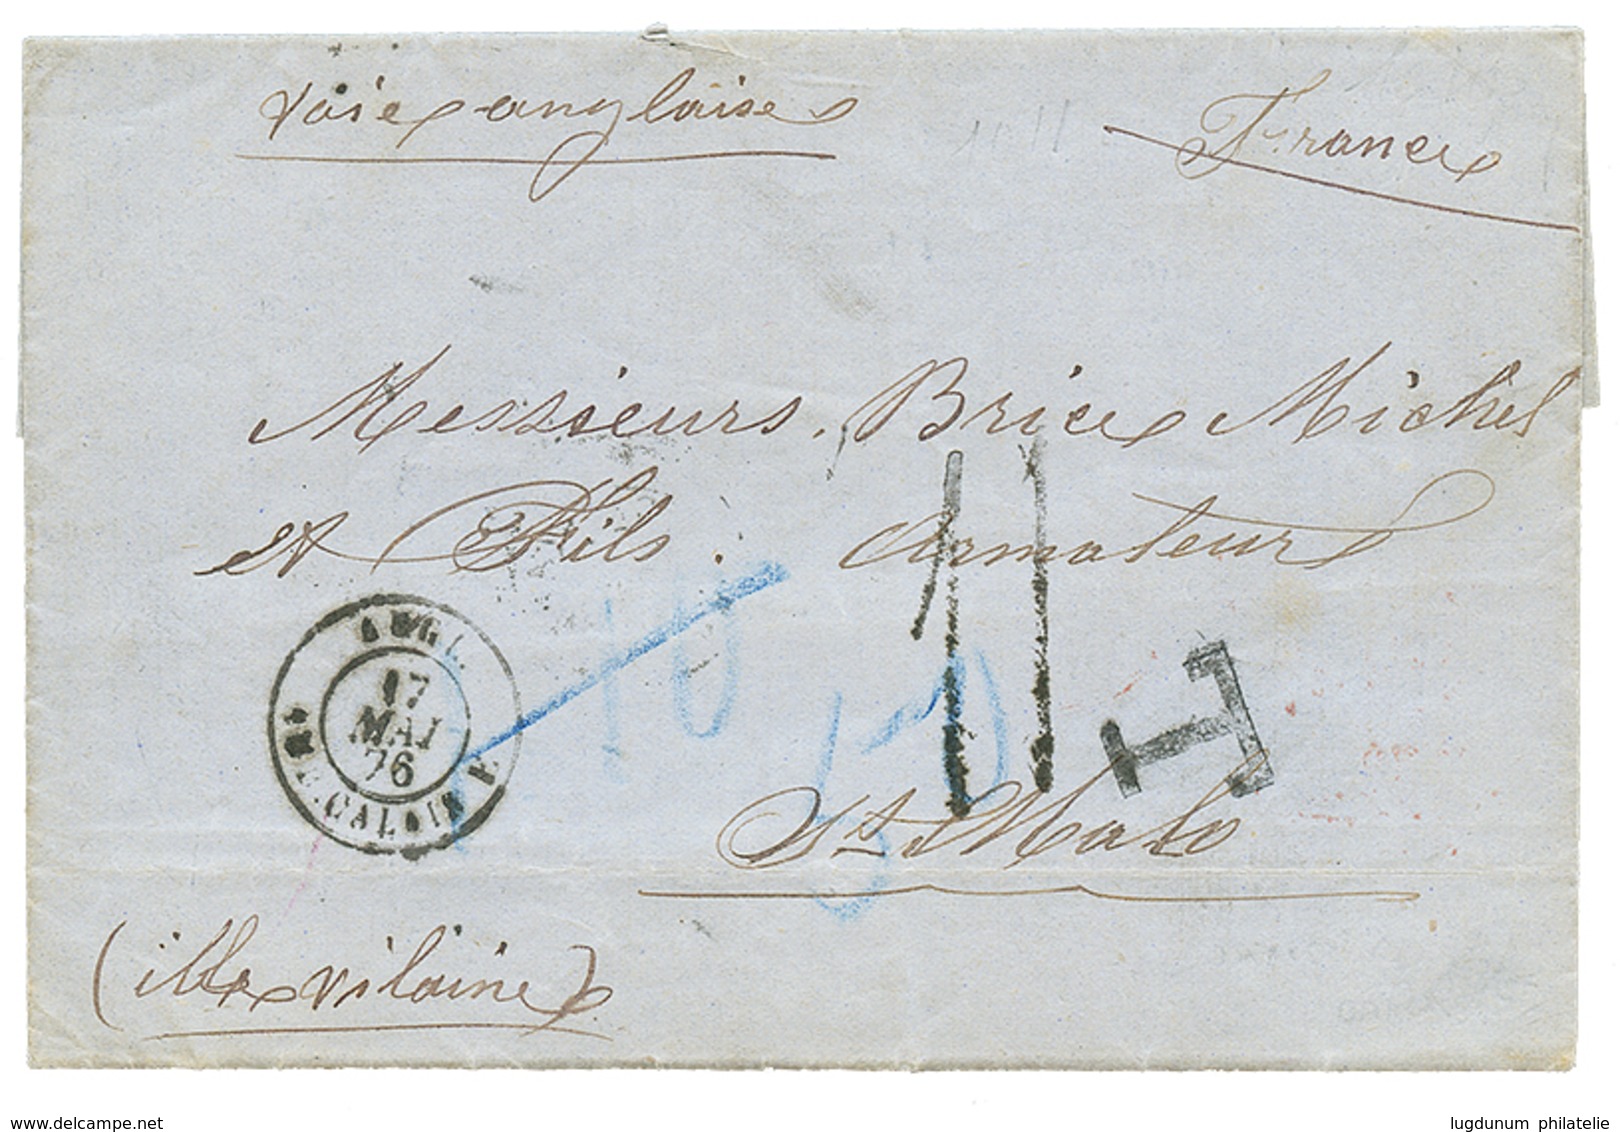 voie anglaise
France
Messieurs. Brice Michel
et Fils. armateurs
ANGL.
17
MAI
76
CALAIS
10
11
T
St Malo
(ille vilaine)
delcampe.net
lugdunum philatelie